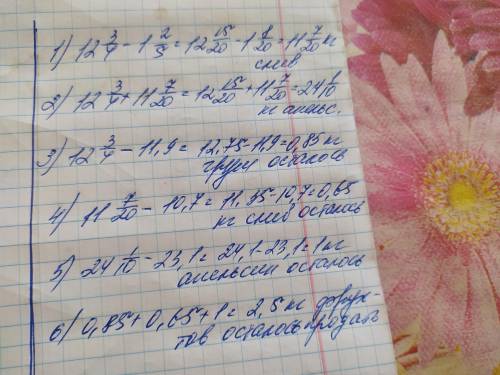 1) 12 3/4 - 1 2/5 = 12 15/20 - 1 8/20 = 11 7/20 кг
слив
2) 12 3/4 + 11 7/20 = 12 15/20 + 11 7/20 = 24 1/10
кг апельс.
3) 12 3/4 - 11,9 = 12,75 - 11,9 = 0,85 кг
груш осталось
4) 11 7/20 - 10,7 = 11,35 - 10,7 = 0,65
кг слив осталось
5) 24 1/10 - 23,1 = 24,1 - 23,1 = 1 кг
апельсин осталось
6) 0,85 + 0,65 + 1 = 2,5 кг фрук-
тов осталось продать